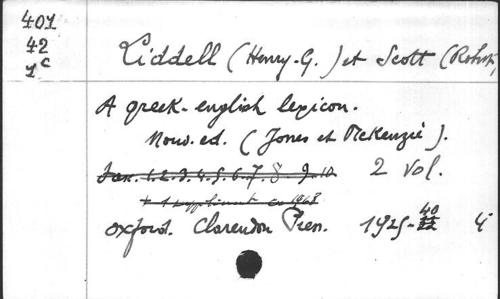 401
42
1c
Liddell (Henry-G.) et Scott (Robert)
A greek-english lexicon.
Nouv. ed. (Jones et McKenzie).
Fasc. 1.2.3.4.5.6.7.8 9.10 2 vol.
+ 1 supplément 1968
Oxford. Clarendon Press. 1925-40 4°